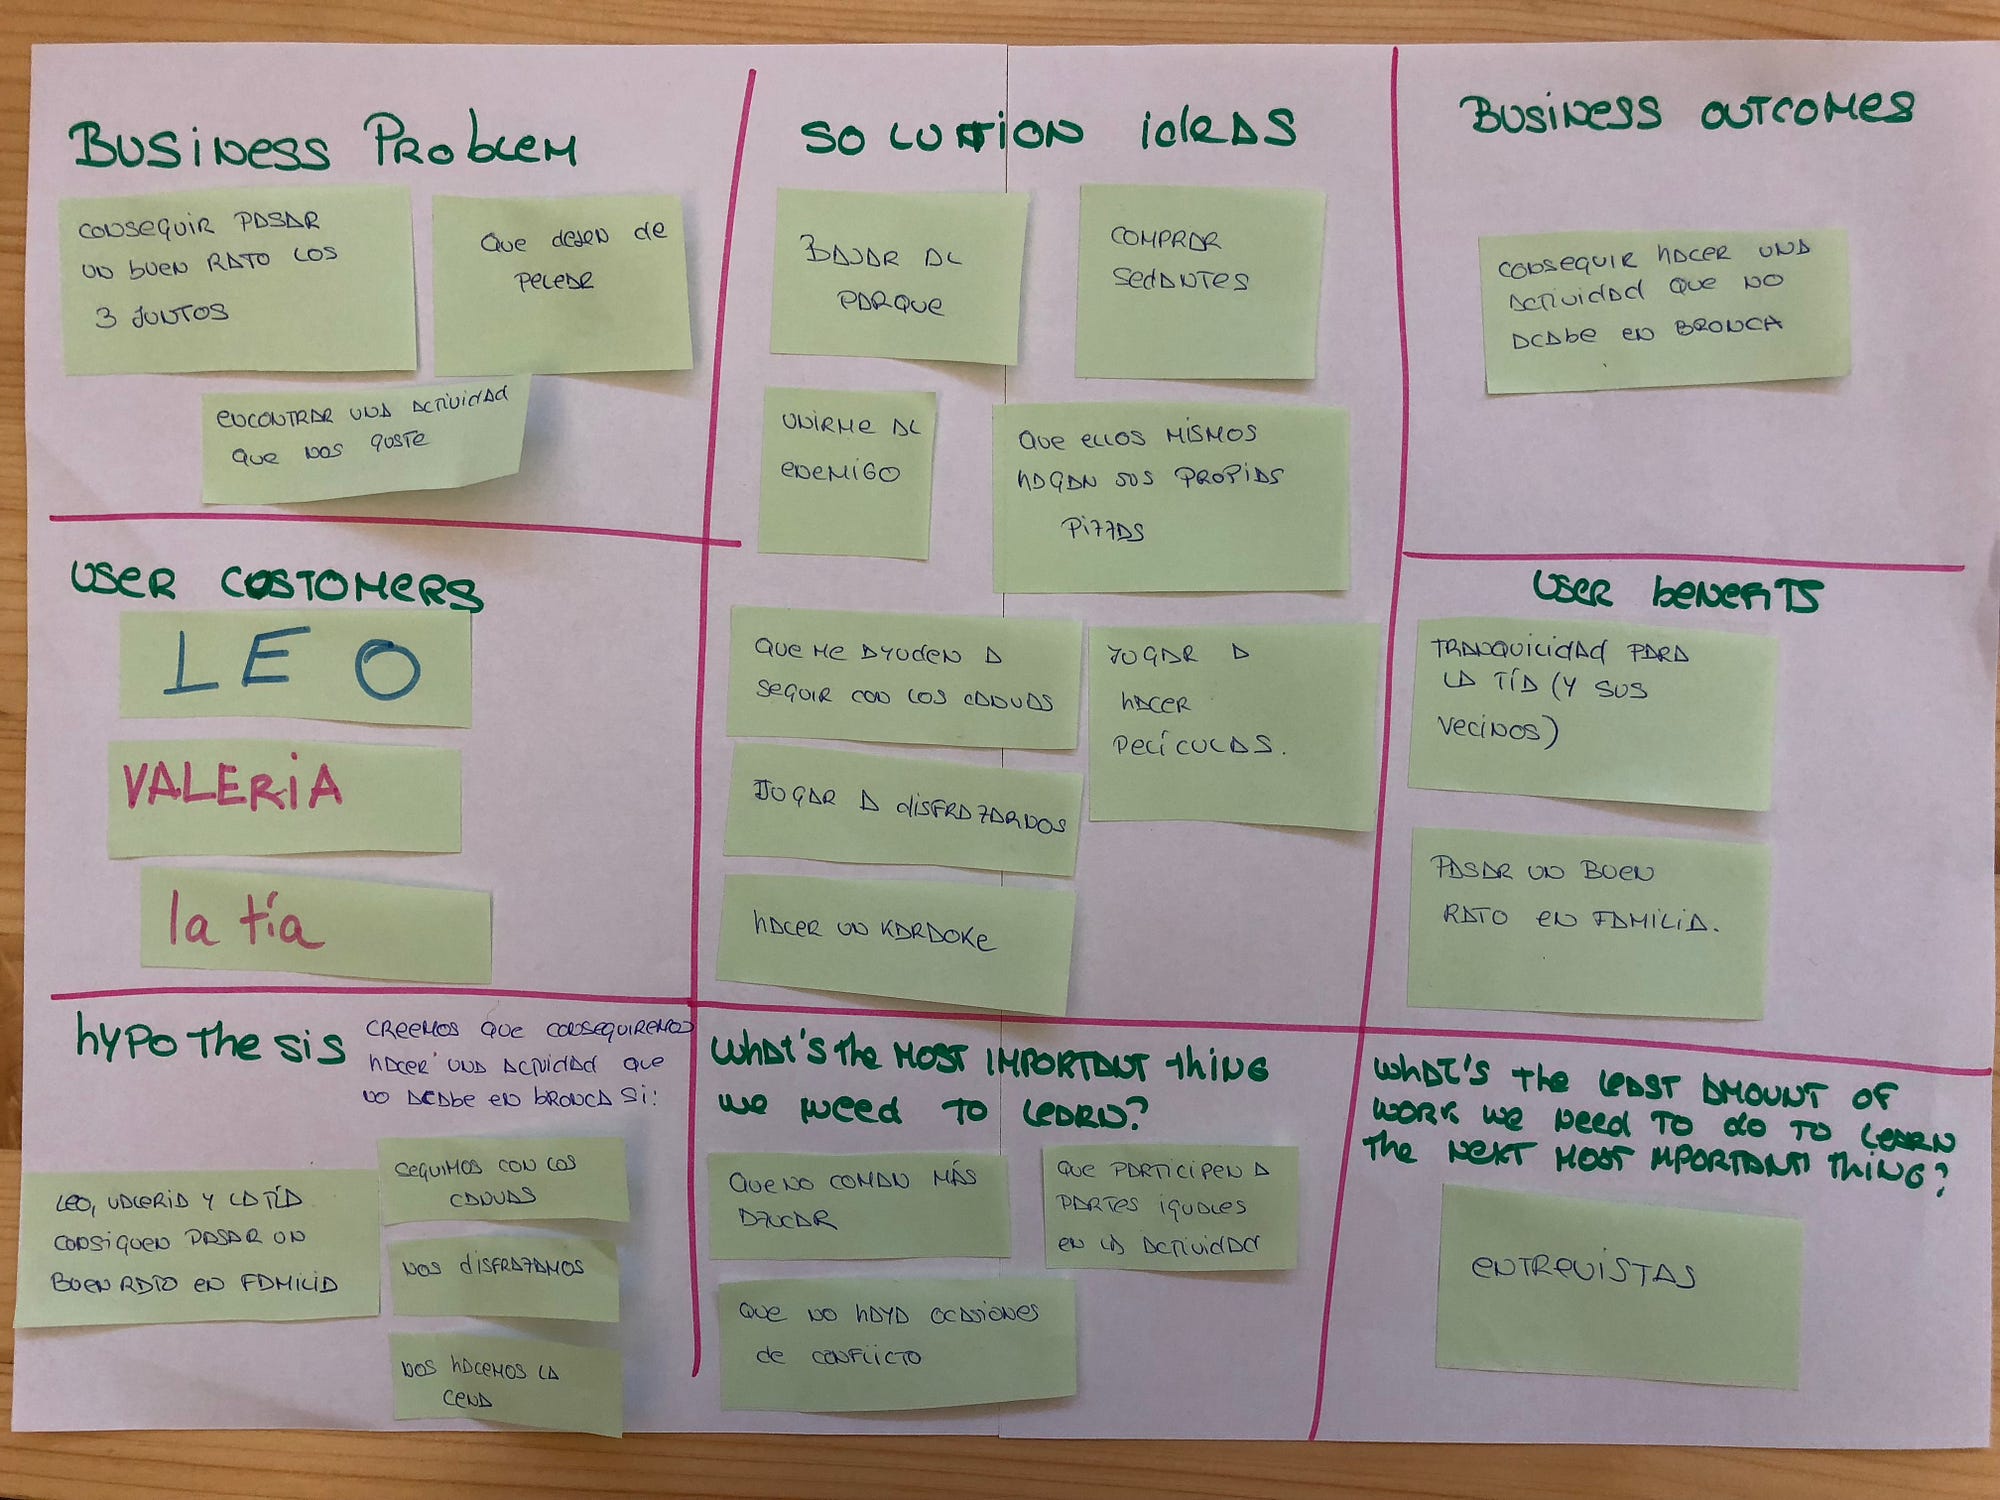 BUSINESS PROBLEM
CONSEGUIR PASAR
UN BUEN RATO LOS
3 JUNTOS
QUE DEJEN DE
PELEAR
ENCONTRAR UNA ACTIVIDAD
QUE NOS GUSTE
SOLUTION IDEAS
BAJAR AL
PARQUE
COMPRAR
SEDANTES
UNIRME AL
ENEMIGO
QUE ELLOS MISMOS
HAGAN SUS PROPIAS
PIZZAS
QUE ME AYUDEN A
SEGUIR CON LOS CANVAS
JUGAR A
HACER
PELÍCULAS.
JUGAR A DISFRAZARNOS
HACER UN KARAOKE
BUSINESS OUTCOMES
CONSEGUIR HACER UNA
ACTIVIDAD QUE NO
ACABE EN BRONCA
USER COSTOMERS
LEO
VALERIA
la tía
USER BENEFITS
TRANQUILIDAD PARA
LA TÍA (Y SUS
VECINOS)
PASAR UN BUEN
RATO EN FAMILIA.
HYPOTHESIS
CREEMOS QUE CONSEGUIREMOS
HACER UNA ACTIVIDAD QUE
NO ACABE EN BRONCA SI:
LEO, VALERIA Y LA TÍA
CONSIGUEN PASAR UN
BUEN RATO EN FAMILIA
SEGUIMOS CON LOS
CANVAS
NOS DISFRAZAMOS
NOS HACEMOS LA
CENA
WHAT'S THE MOST IMPORTANT THING
WE NEED TO LEARN?
QUE NO COMAN MÁS
AZUCAR
QUE PARTICIPEN A
PARTES IGUALES
EN LA ACTIVIDAD
QUE NO HAYA OCASIONES
DE CONFLICTO
WHAT'S THE LEAST AMOUNT OF
WORK WE NEED TO DO TO LEARN
THE NEXT MOST MPORTANT THING?
ENTREVISTAS